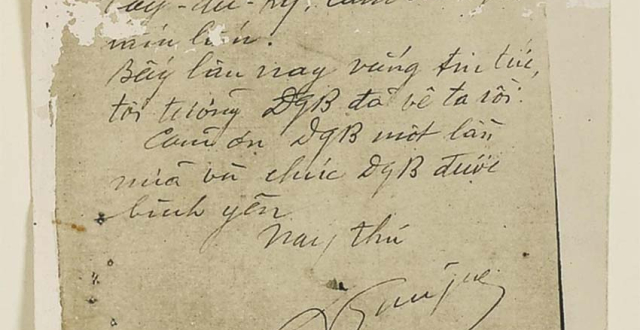 Bấy lâu nay vắng tin tức,
tôi tưởng DGB đã về ta rồi.
Cám ơn DGB một lần
nữa và chúc DGB được
bình yên
Nay thư